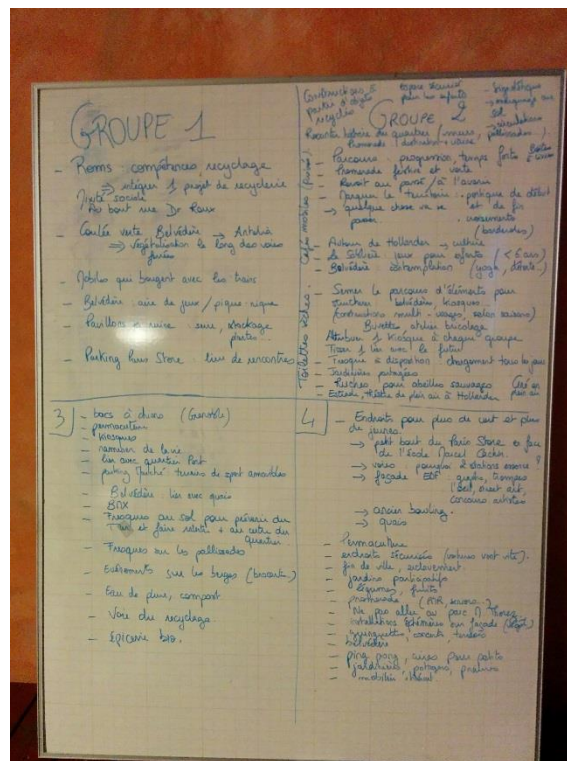 GROUPE 1
- Roms : compétences recyclage
⇒ intégrer 1 projet de recyclerie
Mixité sociale
Au bout rue Dr Roux
- Coulée verte Belvédère → Antelia
⇒ végétalisation le long des voies
- Mobiles qui bougent avec les trains
- Belvédère : aire de jeux / pique-nique
- Pavillons en ruine : serre, stockage
plantes...
- Parking Paris Store : lieu de rencontres
Constructions à
partir d'objets
recyclés
espace sécurisé
pour les enfants
- Signalétique
→ marquage au
sol
→ circulations
GROUPE 2
Raconter histoire des quartiers (murs,
palissades...)
Promenade
- Parcours : programmer temps forts
- Promenade fertile et verte
- Renvoi au passé / à l'avenir
- Marquer le territoire : portique de début
et de fin
→ quelque chose va se
passer
- croisements
(banderoles)
- Autour de Hollander → culture
- Belvédère : contemplation (yoga, détente..)
Toilettes sèches. Cafés mobiles
- Semer le parcours d'éléments pour
structurer : belvédère, kiosques...
(constructions multi-usages, selon saisons)
Buvettes, atelier bricolage
- Attribuer 1 kiosque à chaque groupe
- Tisser 1 lien avec le futur
- Fresque à disposition : changement tous les jours
- Jardinières potagères
- Ruches pour abeilles sauvages
- Estrade, théâtre de plein air à Hollander
Ciné en
plein air
3
- bacs à douches (Grenoble)
- permaculture
- kiosques
- lien avec quartier Port
- parking : terrains de sport
- Belvédère : lien avec quais
- BMX
- Fresques au sol pour prévenir du
et faire relation + au centre du
quartier
- Fresques sur les palissades
- Evénements sur les berges (brocante..)
- Eau de pluie, compost
- Voie du recyclage
- Epicerie bio.
4
- Endroits pour plus de vert et plus
de jeunes.
→ petit bout du Paris Store en face
de l'école Marcel Cachin
→ voies : pourquoi 2 stations essence ?
→ façade EDF : graphs, trompes
l'oeil, street art,
concours artistes
→ ancien bowling.
→ quais
- Permaculture
- endroits sécurisés (voitures vont vite).
- fin de ville, enclavement.
- jardins participatifs
légumes, fruits
- promenade
- Ne pas aller au parc M. Thorez
- installations éphémères sur façade
- guinguettes, concerts
- belvédère
- ping pong, aires pour petits
- jardinières, potagers,